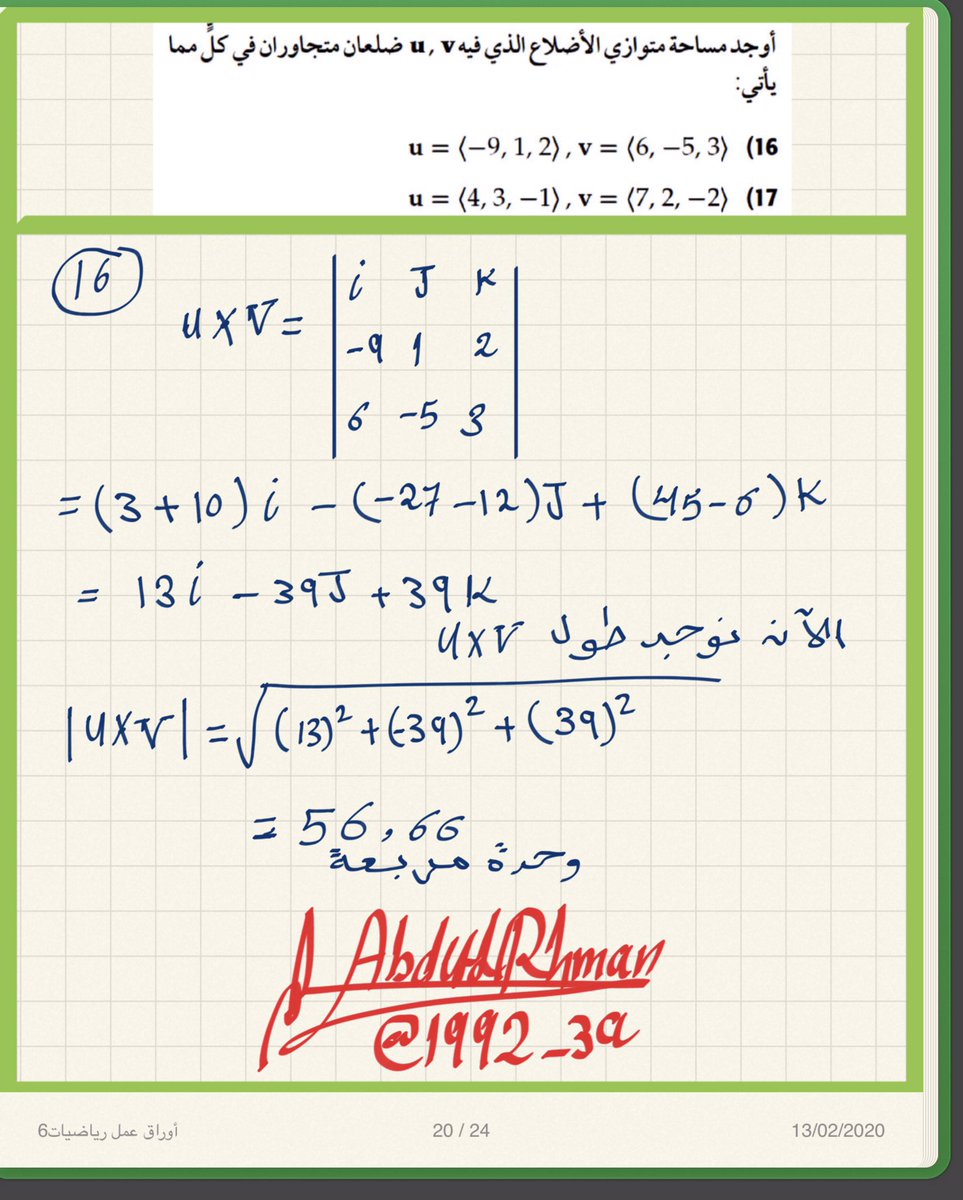 أوجد مساحة متوازي الأضلاع الذي فيه u, v ضلعان متجاوران في كلٍّ مما
يأتي:
16) u = ⟨−9, 1, 2⟩, v = ⟨6, −5, 3⟩
17) u = ⟨4, 3, −1⟩, v = ⟨7, 2, −2⟩
16
u x v = | i J K |
| -9 1 2 |
| 6 -5 3 |
= (3 + 10) i - (-27 - 12) J + (45 - 6) K
= 13 i - 39 J + 39 K
الآن نوجد طول u x v
|u x v| = √(13)² + (-39)² + (39)²
= 56,66
وحدة مربعة
AbdulRhman
@1992_3a
أوراق عمل رياضيات6
20 / 24
13/02/2020